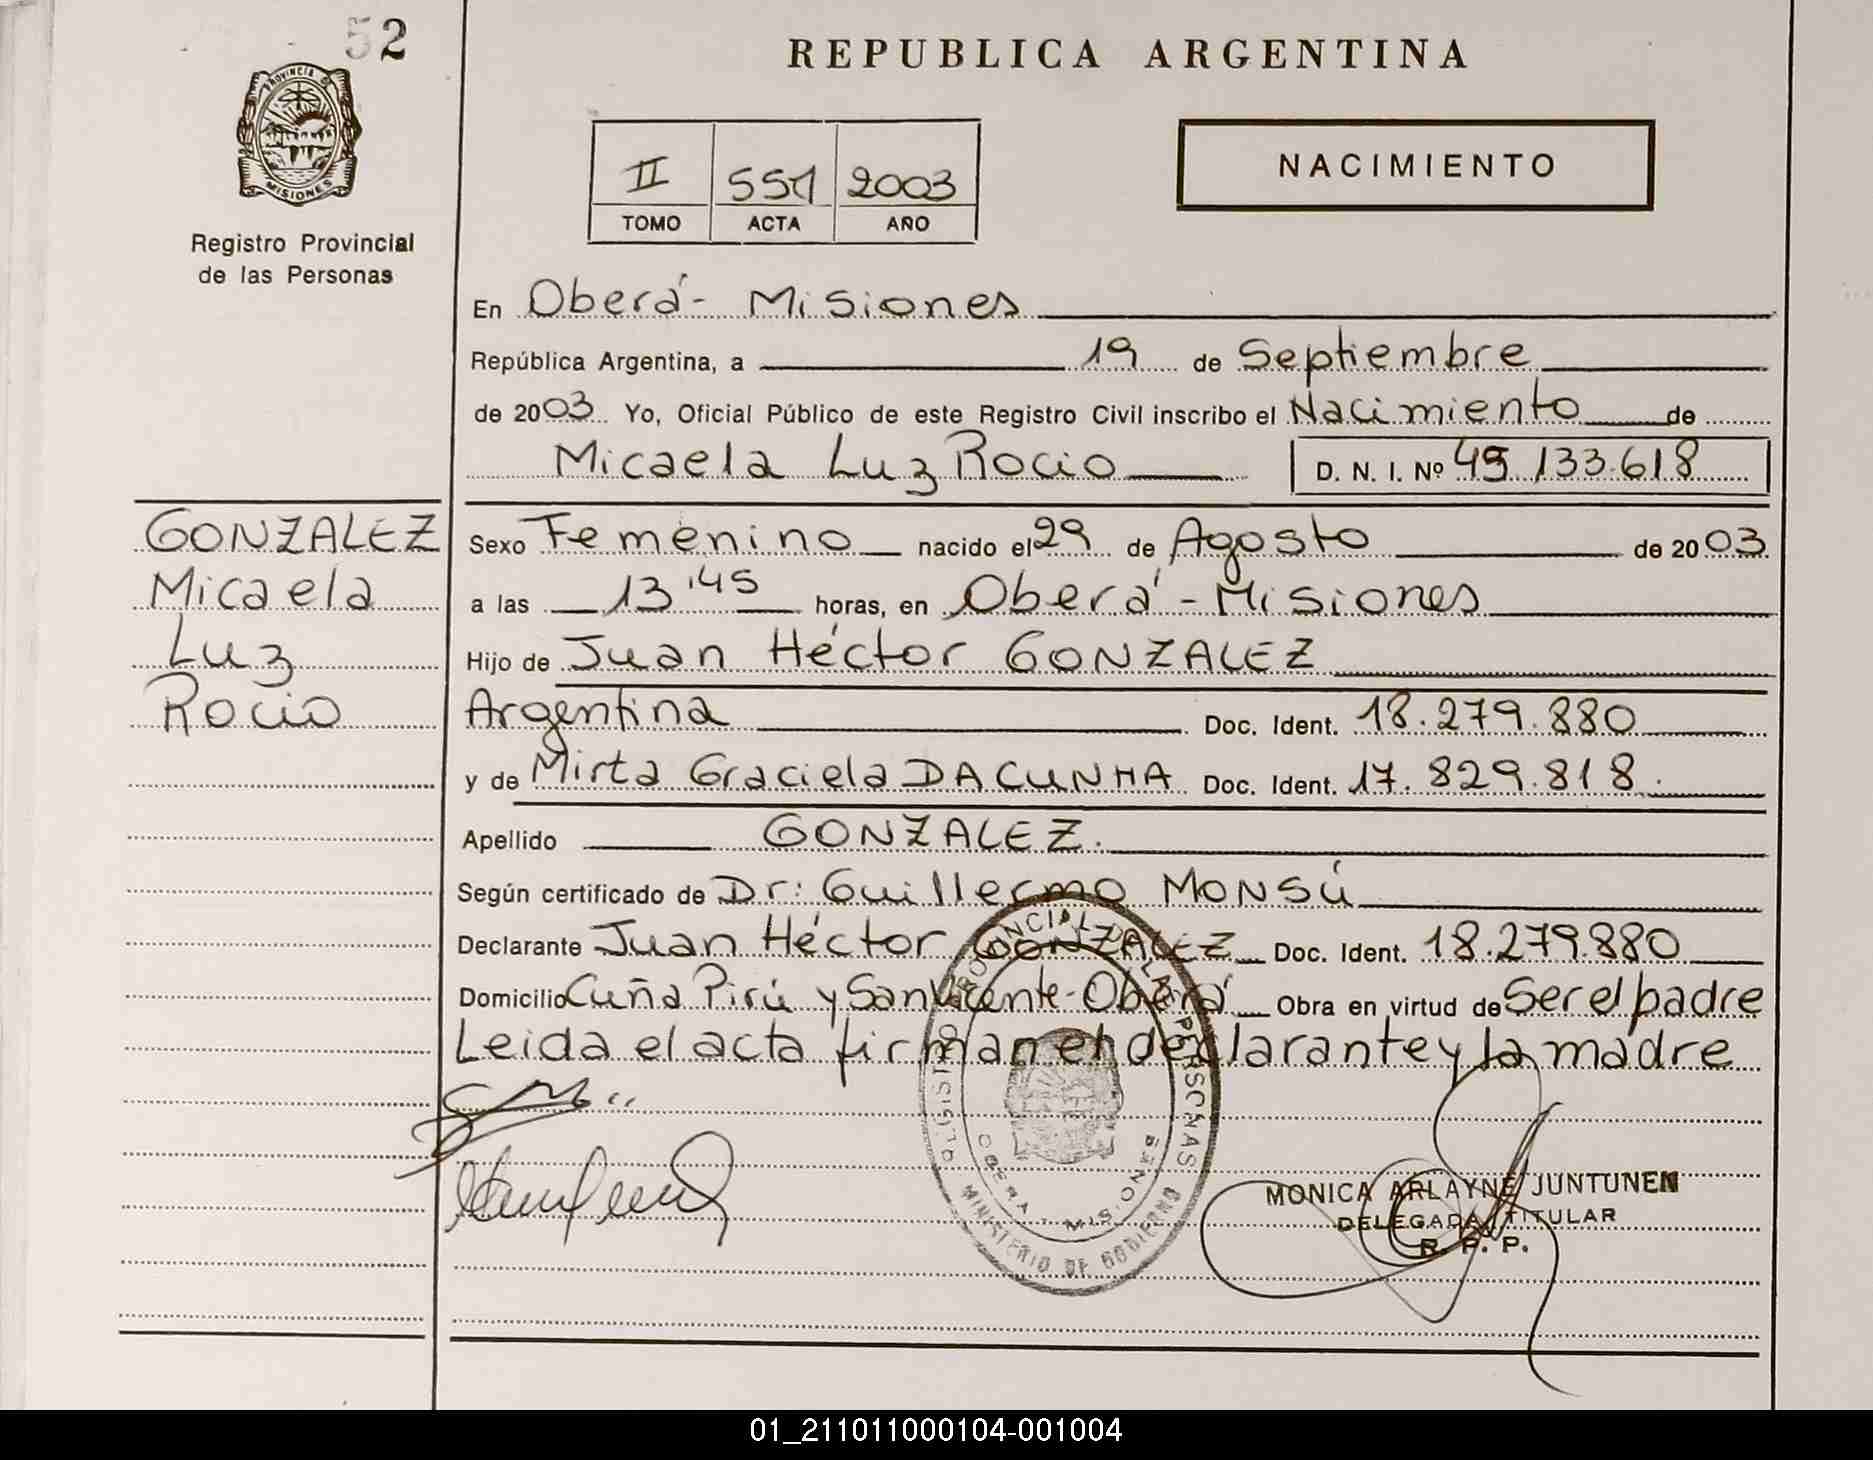 52
PROVINCIA DE
MISIONES
Registro Provincial
de las Personas
REPUBLICA ARGENTINA
II 551 2003
TOMO ACTA AÑO
NACIMIENTO
En Oberá - Misiones
República Argentina, a 19 de Septiembre
de 2003. Yo, Oficial Público de este Registro Civil inscribo el Nacimiento de
Micaela Luz Rocio D. N. I. Nº 45.133.618
GONZALEZ
Micaela
Luz
Rocio
Sexo Femenino nacido el 29 de Agosto de 2003.
a las 13:45 horas, en Oberá - Misiones
Hijo de Juan Héctor GONZALEZ
Argentina Doc. Ident. 18.279.880
y de Mirta Graciela DACUNHA Doc. Ident. 17.829.818.
Apellido GONZALEZ.
Según certificado de Dr: Guillermo MONSÚ
Declarante Juan Héctor GONZALEZ Doc. Ident. 18.279.880
Domicilio Cuña Pirú y San Vicente - Oberá Obra en virtud de Ser el padre
Leida el acta firman el declarante y la madre
REGISTRO PROVINCIAL DE LAS PERSONAS
MINISTERIO DE GOBIERNO
OBERA - MISIONES
MONICA ARLAYNE JUNTUNEN
DELEGADA TITULAR
R. P. P.
01_211011000104-001004